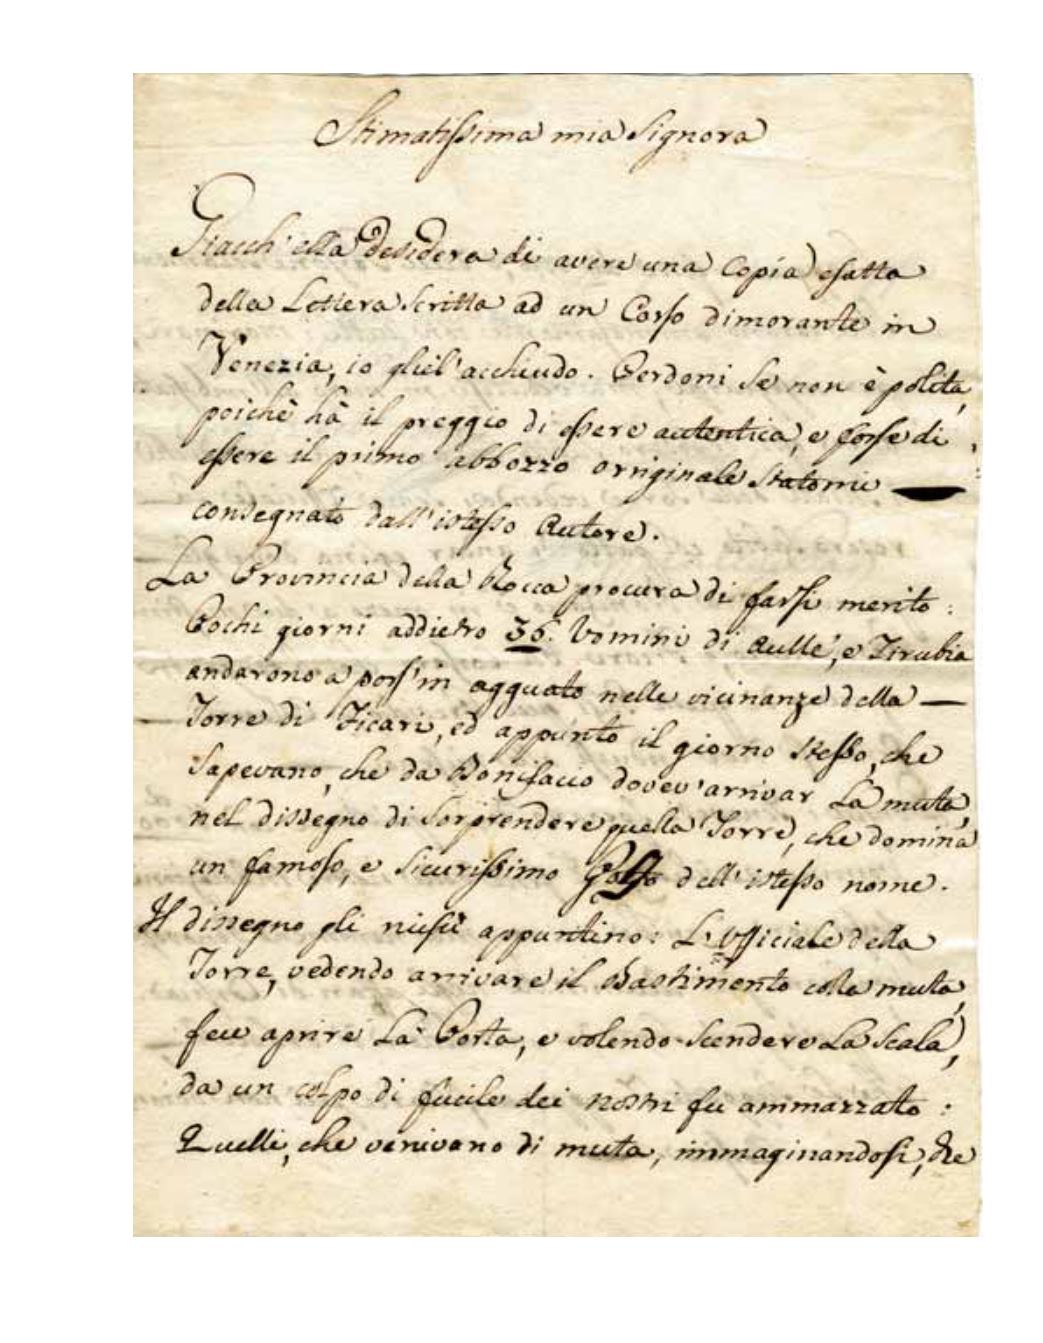 Stimatissima mia Signora
Giacch' ella desidera di avere una Copia esatta
della Lettera scritta ad un Corso dimorante in
Venezia, io gliel'acchiudo. Perdoni se non è polita,
poichè hà il preggio di essere autentica, e forse di
essere il primo abbozzo originale statomi —
consegnato dall'istesso Autore.
La Provincia della Rocca procura di farsi merito:
Pochi giorni addietro 36. Uomini di Aullé, e Zirubia
andarono a pors'in agguato nelle vicinanze della —
Torre di Ficari, ed appunto il giorno stesso, che
sapevano, che da Bonifacio dovev'arrivar la muta,
nel dissegno di sorprendere quella Torre, che domina
un famoso, e sicurissimo Golfo dell'istesso nome.
Il disegno gli riuscì appuntino: L'Ufficiale della
Torre, vedendo arrivare il Bastimento colla muta,
fece aprire La Porta, e volendo scendere La scala,
da un colpo di fucile dei nostri fu ammazzato:
Quelli, che venivano di muta, immaginandosi, che